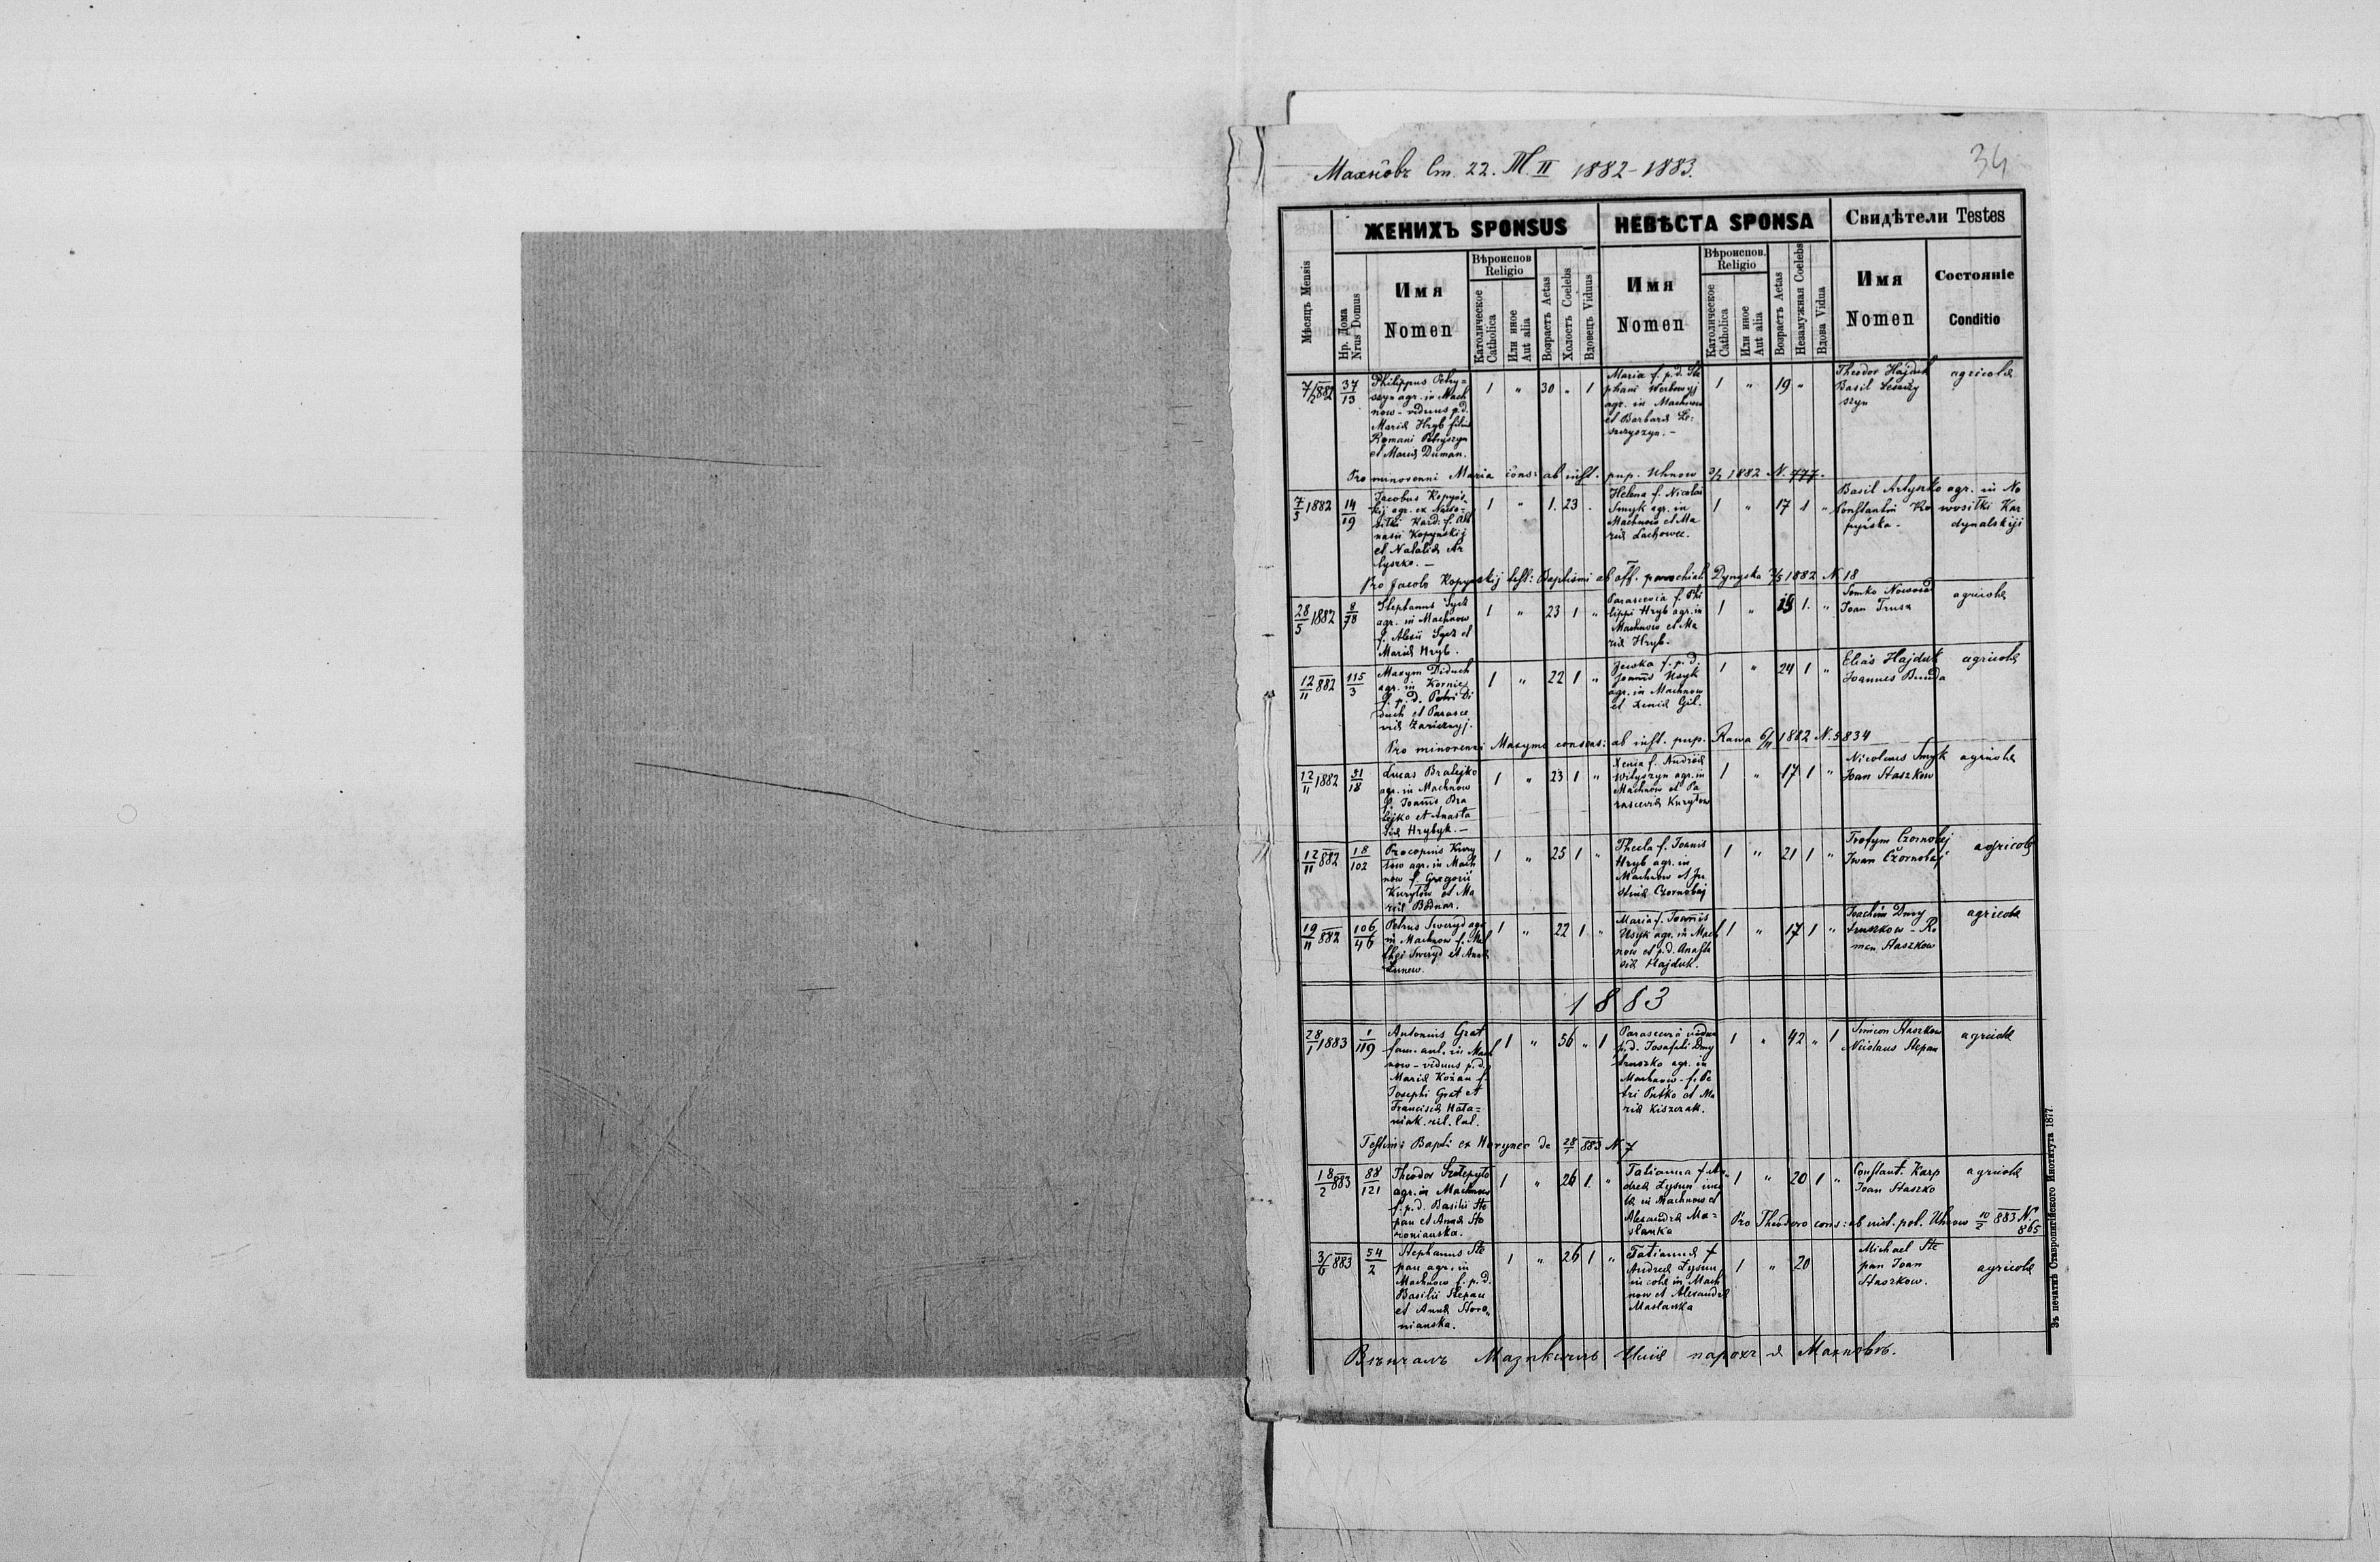 Махнôвъ Ст. 22. Т. II 1882-1883.
34
ЖЕНИХЪ SPONSUS
НЕВѢСТА SPONSA
Свидѣтели Testes
Мѣсяцъ Mensis
Нр. Дома
Nrus Domus
Имя
Nomen
Вѣроиспов
Religio
Католическое
Catholica
Или иное
Aut alia
Возрастъ Aetas
Холостъ Coelebs
Вдовецъ Viduus
Имя
Nomen
Вѣроиспов.
Religio
Католическое
Catholica
Или иное
Aut alia
Возрастъ Aetas
Незамужная Coelebs
Вдова Vidua
Имя
Nomen
Состоянiе
Conditio
7/2 882
37/13
Philippus Petry=
szyn agr. in Mach
now - viduus p.d.
Maria Hryb filius
Romani Petryszyn
et Maria Duman.
1 " 30 " 1
Maria f. p. d. Ste
phani Werbowyj
agr. in Machnow
et Barbara Le=
szczyszyn. -
1 " 19 "
Theodor Hajduk
Basil Leszczy
szyn
agricola
Pro minorenni Maria cons: ab inst. pup. Uhnow 3/2 1882 N. 777.
7/5 1882
14/19
Jacobus Kopyń
skij agr. ex Nowo=
sitki Kard: f. Ata
nasii Kopynskij
et Natalia Ar
tyszko. -
1 " 1. 23 .
Helena f. Nicolai
Smyk agr. in
Machnow et Ma
ria Lachowec.
1 " 17 1 "
Basil Artyszko
Constantin Ko
pyńska -
agr. in No
wositki Kar
dynalskiji
Pro Jacobo Kopynskij test: Baptismi ab off. parochial Dyniska 7/5 1882 N 18
28/5 1882
8/78
Stephanus Sycz
agr. in Machnow
f. Alexii Sycz et
Maria Hryb.
1 " 23 1 "
Parascevia f. Phi
lippi Hryb agr. in
Machnow et Ma
ria Hryb.
1 " 19 1. "
Semko Nowosad
Joan Trusz
agricola
12/11 882
115/3
Maxym Diduch
agr. in Kornie
f. p. d. Petri Di
duch et Parasce
via Zaricznyj.
1 " 22 1 "
Jewka f. p. d.
Joannis Usyk
agr. in Machnow
et Xenia Gil.
1 " 24 1 "
Elias Hajduk
Joannes Bunda
agricola
Pro minorenni Maxymo consens: ab inst. pup. Rawa 6/11 1882 N. 5834
12/11 1882
31/18
Lucas Bralejko
agr. in Machnow
f. Joannis Bra
lejko et Anasta
sia Hrybyk. -
1 " 23 1 "
Xenia f. Andreae
Wityszyn agr. in
Machnow et Pa
rascevia Kurytow
1 " 17 1 "
Nicolaus Smyk
Joan Staszkow
agricola
12/11 882
18/102
Procopius Kury
tow agr. in Mach
now f. Gregorii
Kurytow et Ma
ria Bodnar.
1 " 25 1 "
Thecla f. Joannis
Hryb agr. in
Machnow et Ju
stina Czornobaj
1 " 21 1 "
Trofym Czornobaj
Iwan Czornobaj
agricola
19/11 882
106/46
Petrus Sweryd agr.
in Machnow f. Mat
thei Sweryd et Anna
Lunew.
1 " 22 1 "
Maria f. Joannis
Usyk agr. in Mach
now et p.d. Anasta
sia Hajduk.
1 " 17 1 "
Joachim Dmy
truszkow - Ro
man Staszkow
agricola
1883
28/1 1883
1/119
Antonius Grat
fam. aul. in Mach
now - viduus p.d.
Maria Kożan f.
Josephi Grat et
Francisca Hata=
niak. rit. lat.
1 " 56 " 1
Parascevia vidua
p.d. Josaphati Dmy
truszko agr. in
Machnow - f. Pe
tri Putko et Ma
ria Kiszczak.
1 " 42 " 1
Simeon Staszkow
Nicolaus Stepan
agricola
Testim: Bapti ex Horynec de 28/1 883 N 7
18/2 883
88/121
Theodor
agr. in Machnow
f. p. d. Basilii Ste
pan et Anna Sto
ronianska.
1 " 26 1. "
Tatianna f. An
drea Lysun inco
la in Machnow et
Alexandra Ma=
slanka
1 " 20 1 "
Constant. Karp
Joan Staszko
agricola
Pro Theodoro cons: ab inst. pol. Uhnow 10/2 883 N.
865
3/6 883
54/2
Stephanus Ste
pan agr. in
Machnow f. p. d.
Basilii Stepan
et Anna Storo„
nianska.
1 " 26 1 "
Tatianna f
Andrea Lysun
incola in Mach
now et Alexandra
Maslanka
1 " 20
Michael Ste
pan Joan
Staszkow.
agricola
парох Махновъ.
Зъ печатнѣ Ставропигійского Института 1877.